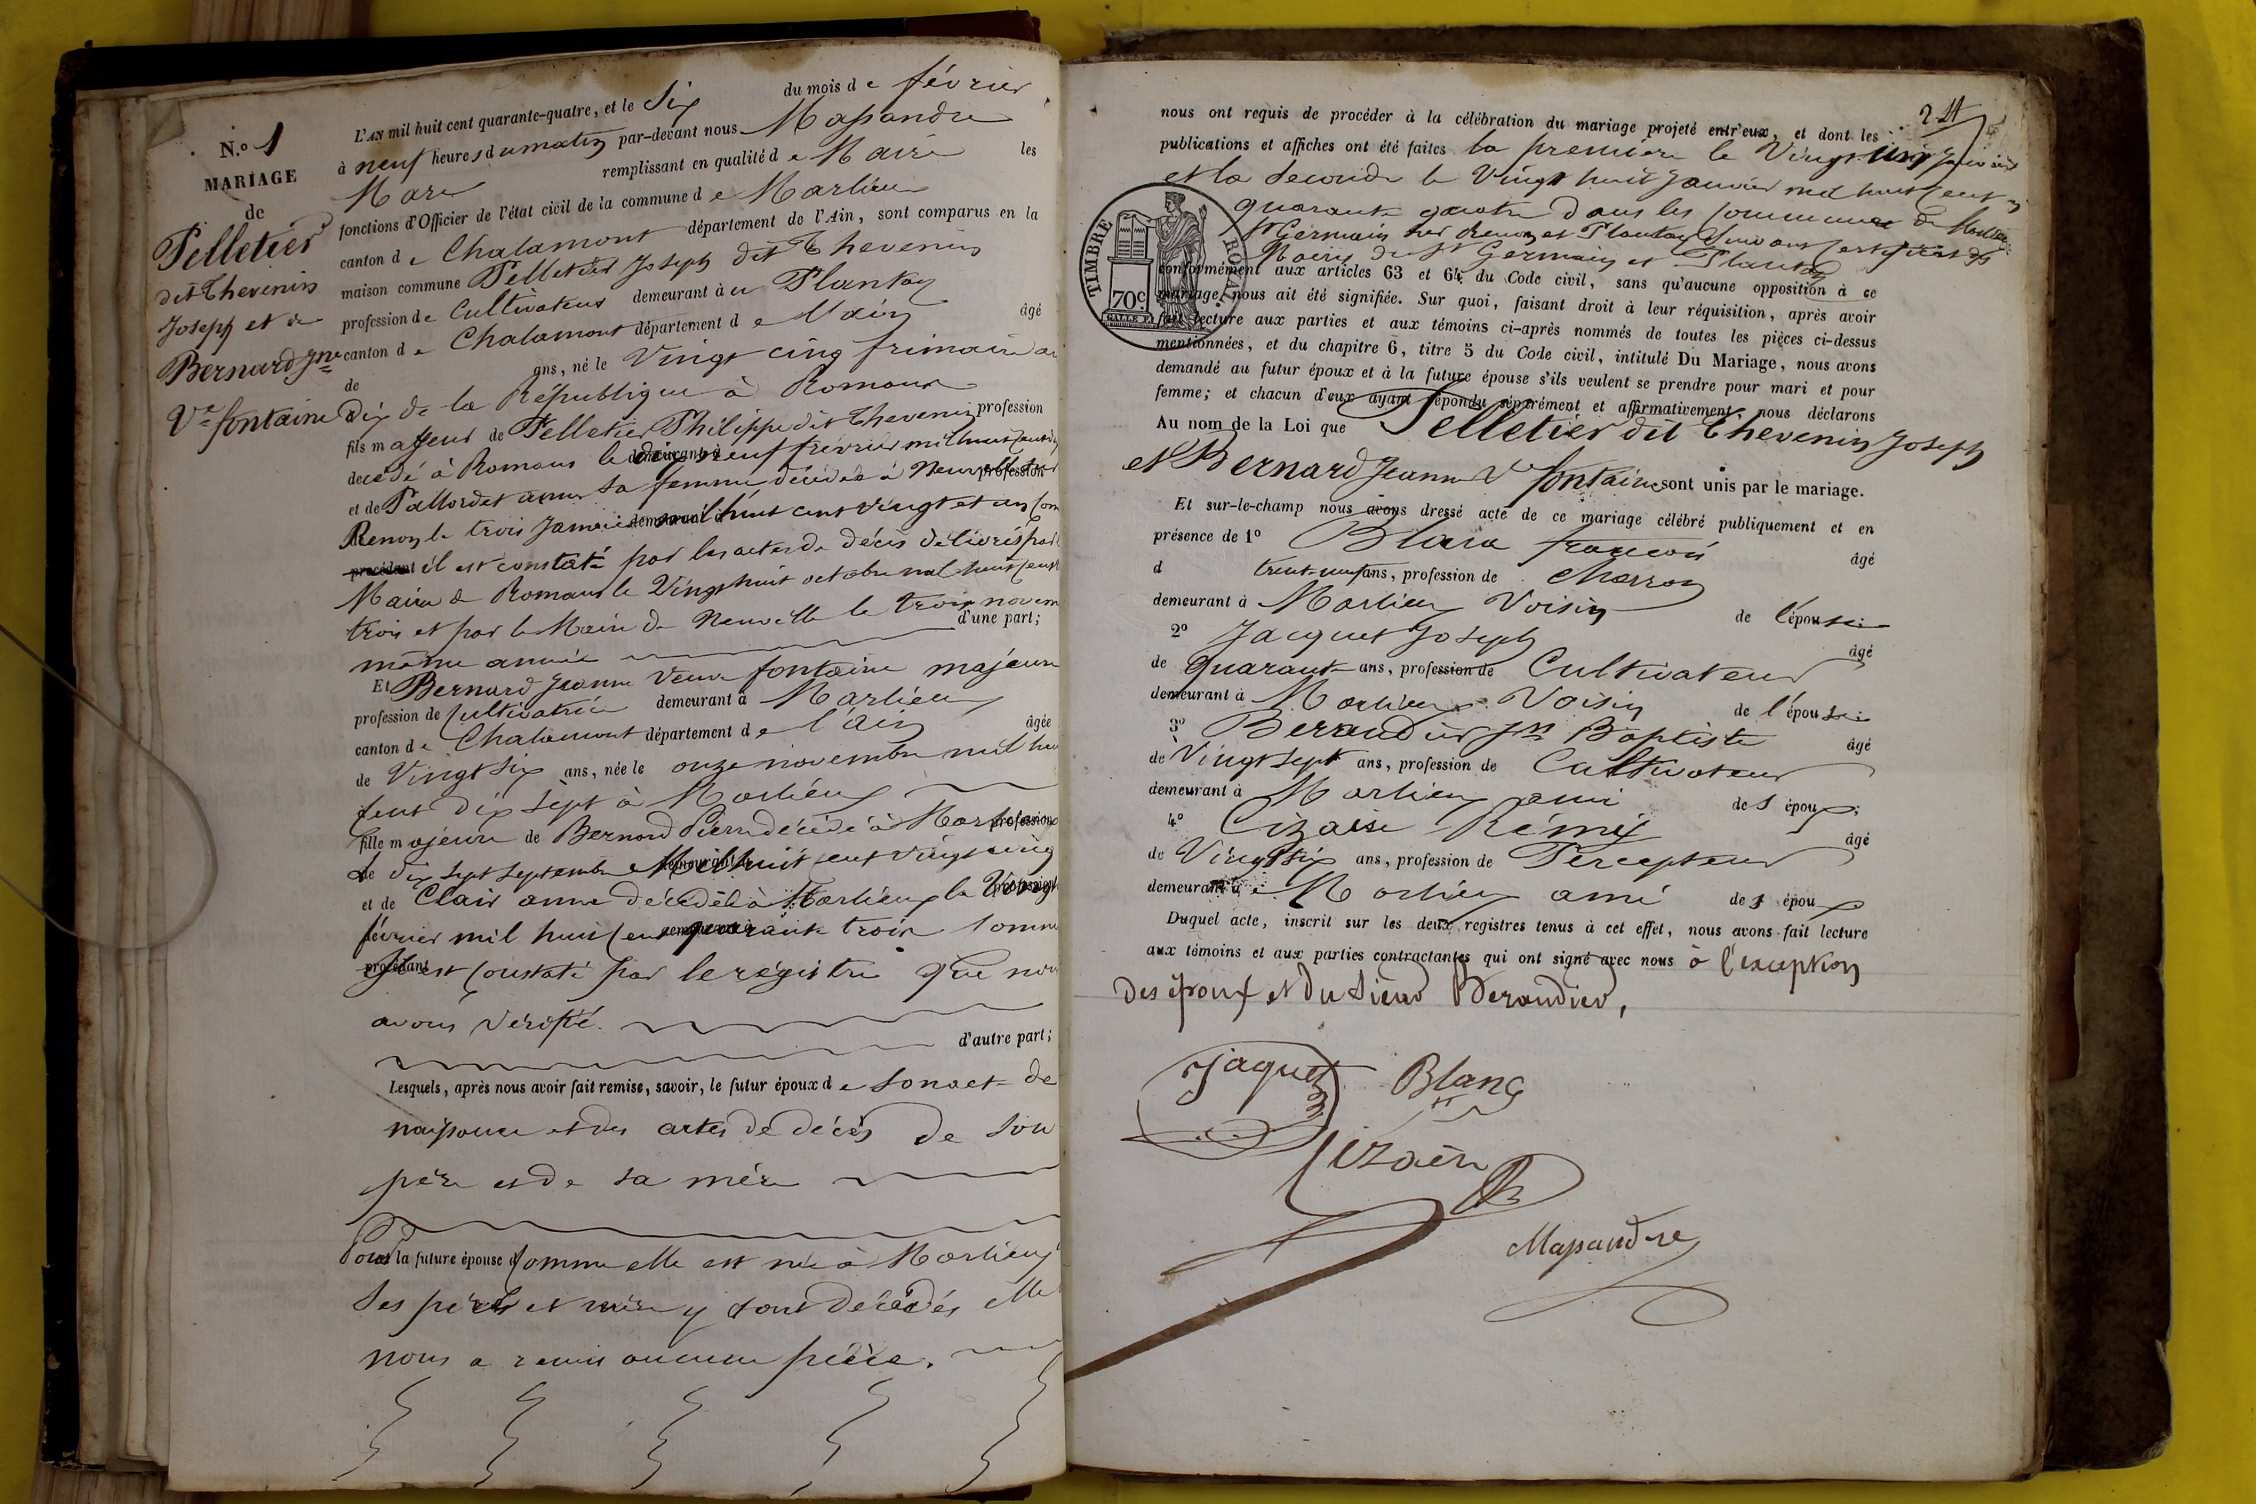 N.º 1
MARIAGE
de
Pelletier
dit Thevenin
Joseph et de
Bernard Jne
Ve fontaine
L'AN mil huit cent quarante-quatre, et le Six du mois de février
à neuf heures du matin par-devant nous Massandre
Marc remplissant en qualité de Maire les
fonctions d'Officier de l'état civil de la commune de Marlieux
canton de Chalamont département de l'Ain, sont comparus en la
maison commune Pelletier Joseph dit Thevenin
profession de Cultivateur demeurant à Plantay
canton de Chalamont département de l'ain âgé
de ans, né le Vingt cinq frimaire an
Dix de la République à Romans
fils majeur de Pelletier Philippe dit Thevenin profession
décédé à Romans le dix neuf février mil huit cent
et de sa femme décédée à Neuville les
Renon le trois Janvier mil huit cent vingt et un Com
il est constaté par les actes de décès délivrés par
Maire de Romans le Vingt huit octobre mil huit cent
trois et par le Maire de Neuville le trois novem
même année d'une part;
Et Bernard Jeanne Veuve fontaine majeure
profession de Cultivatrice demeurant à Marlieux
canton de Chalamont département de l'ain âgée
de Vingt Six ans, née le onze novembre mil hui
Cent dix sept à Marlieux
fille majeure de Bernard Pierre décédé à Marlieux profession
Le dix sept septembre Mil huit cent vingt cinq
et de Clair anne décédée à Marlieux le Vingt
février mil huit cent quarante trois Comme
Il est Constaté par le registre que nous
avons Vérifié.
d'autre part;
Lesquels, après nous avoir fait remise, savoir, le futur époux de Son acte de
naissance et des actes de décès de Son
père et de sa mère
Pour la future épouse Comme elle est née à Marlieux
Ses père et mère y sont décédés elle
nous a remis aucune pièce.
24
nous ont requis de procéder à la célébration du mariage projeté entr'eux, et dont les
publications et affiches ont été faites la première le Vingt un Janvier
et la Seconde le Vingt huit Janvier mil huit Cent
quarante quatre dans les Communes de Marlieux
St Germain sur Renon et Plantay Suivant certificats des
Maires de St Germain et Plantay
conformément aux articles 63 et 64 du Code civil, sans qu'aucune opposition à ce
mariage nous ait été signifiée. Sur quoi, faisant droit à leur réquisition, après avoir
fait lecture aux parties et aux témoins ci-après nommés de toutes les pièces ci-dessus
mentionnées, et du chapitre 6, titre 5 du Code civil, intitulé Du Mariage, nous avons
demandé au futur époux et à la future épouse s'ils veulent se prendre pour mari et pour
femme; et chacun d'eux ayant répondu séparément et affirmativement, nous déclarons
Au nom de la Loi que Pelletier dit Thevenin Joseph
et Bernard Jeanne Ve fontaine sont unis par le mariage.
Et sur-le-champ nous avons dressé acte de ce mariage célébré publiquement et en
présence de 1º Blanc françois âgé
d trente neuf ans, profession de Charron
demeurant à Marlieux Voisin de l'épouse
2º Jacquet Joseph âgé
de quarante ans, profession de Cultivateur
demeurant à Marlieux Voisin de l'épouse
3º Beraudier Jn Baptiste âgé
de Vingt sept ans, profession de Cultivateur
demeurant à Marlieux ami des époux
4º Cizaire Rémy âgé
de Vingt six ans, profession de Percepteur
demeurant à Marlieux ami des époux
Duquel acte, inscrit sur les deux registres tenus à cet effet, nous avons fait lecture
aux témoins et aux parties contractantes qui ont signé avec nous à l'exception
des époux et du Sieur Beraudier,
Jaquet Blanc
Cizaire
Massandre
TIMBRE ROYAL
70c